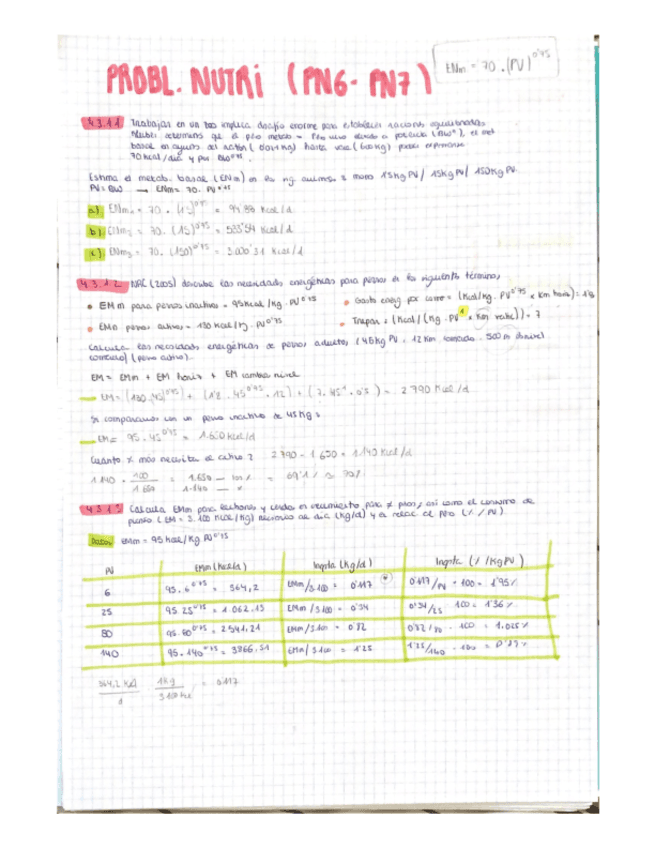 PROBL. NUTRI (PN6- PN7)
ENm = 70 . (PV)^0'75
4.3.1.1 Trabajar en un zoo implica desafío enorme para establecer raciones equilibradas
basal en ayunas del ratón hasta vaca (600kg) puede expresarse
70 kcal/día y por
Estima el metab. basal (ENm) en los ng animales 15kg PV/ 150kg PV.
→ ENm = 70. PV^0'75
a)
b) ENm2 = 70. (15)^0'75 = 533'54 Kcal/d
c) ENm3 = 70. (150)^0'75 = 3.000'31 Kcal/d
4.3.1.2 NRC (2005) describe las necesidades energéticas para perros en los siguientes términos,
• EMm para perros inactivos = 95 kcal/kg. PV^0'75
• Gasto energ por correr = (kcal/kg. PV^0'75 x km horiz) = 1'8
• EMm perros activos = 130 kcal/kg. PV^0'75
• Trepar = (kcal/(kg. PV^1 x km vertic)) = 7
Calcula las necesidades energéticas de perros adultos (45kg PV - 12 km - 500m desnivel
(perro activo).
EM = EMm + EM horiz + EM cambio nivel
EM = (130.45^0'75) + (1'8 . 45^0'75 . 12) + (7. 45^1 . 0'5) = 2790 kcal/d
Si comparamos con un perro inactivo de 45kg:
EM = 95. 45^0'75 = 1.650 kcal/d
Cuánto % más necesita el activo? 2790 - 1650 = 1.140 kcal/d
1.140 . 100/1650 = 1.650 — 100% 1.140 — % = 69'1% ≈ 70%
4.3.1.3 Calcula EMm para lechones y cerdos en crecimiento para ≠ pesos, así como el consumo de
pienso (EM = 3.100 kcal/kg) necesario al día (kg/d) y en relac. al peso (% / PV)
Datos EMm = 95 kcal/kg PV^0'75
PV EMm (kcal/d) Ingesta (kg/d) Ingesta (% /kg PV)
6 95.6^0'75 = 364,2 EMm/3100 = 0'117 0'117/PV . 100 = 1'95%
25 95.25^0'75 = 1062.15 EMm/3100 = 0'34 0'34/25 . 100 = 1'36%
80 95.80^0'75 = 2541,21 EMm/3100 = 0'82 0'82/80 . 100 = 1.025%
140 95.140^0'75 = 3866,51 EMm/3100 = 1'25 1'25/140 . 100 = 0'89%
364,2 kcal/1 1kg/3100 kcal = 0.117